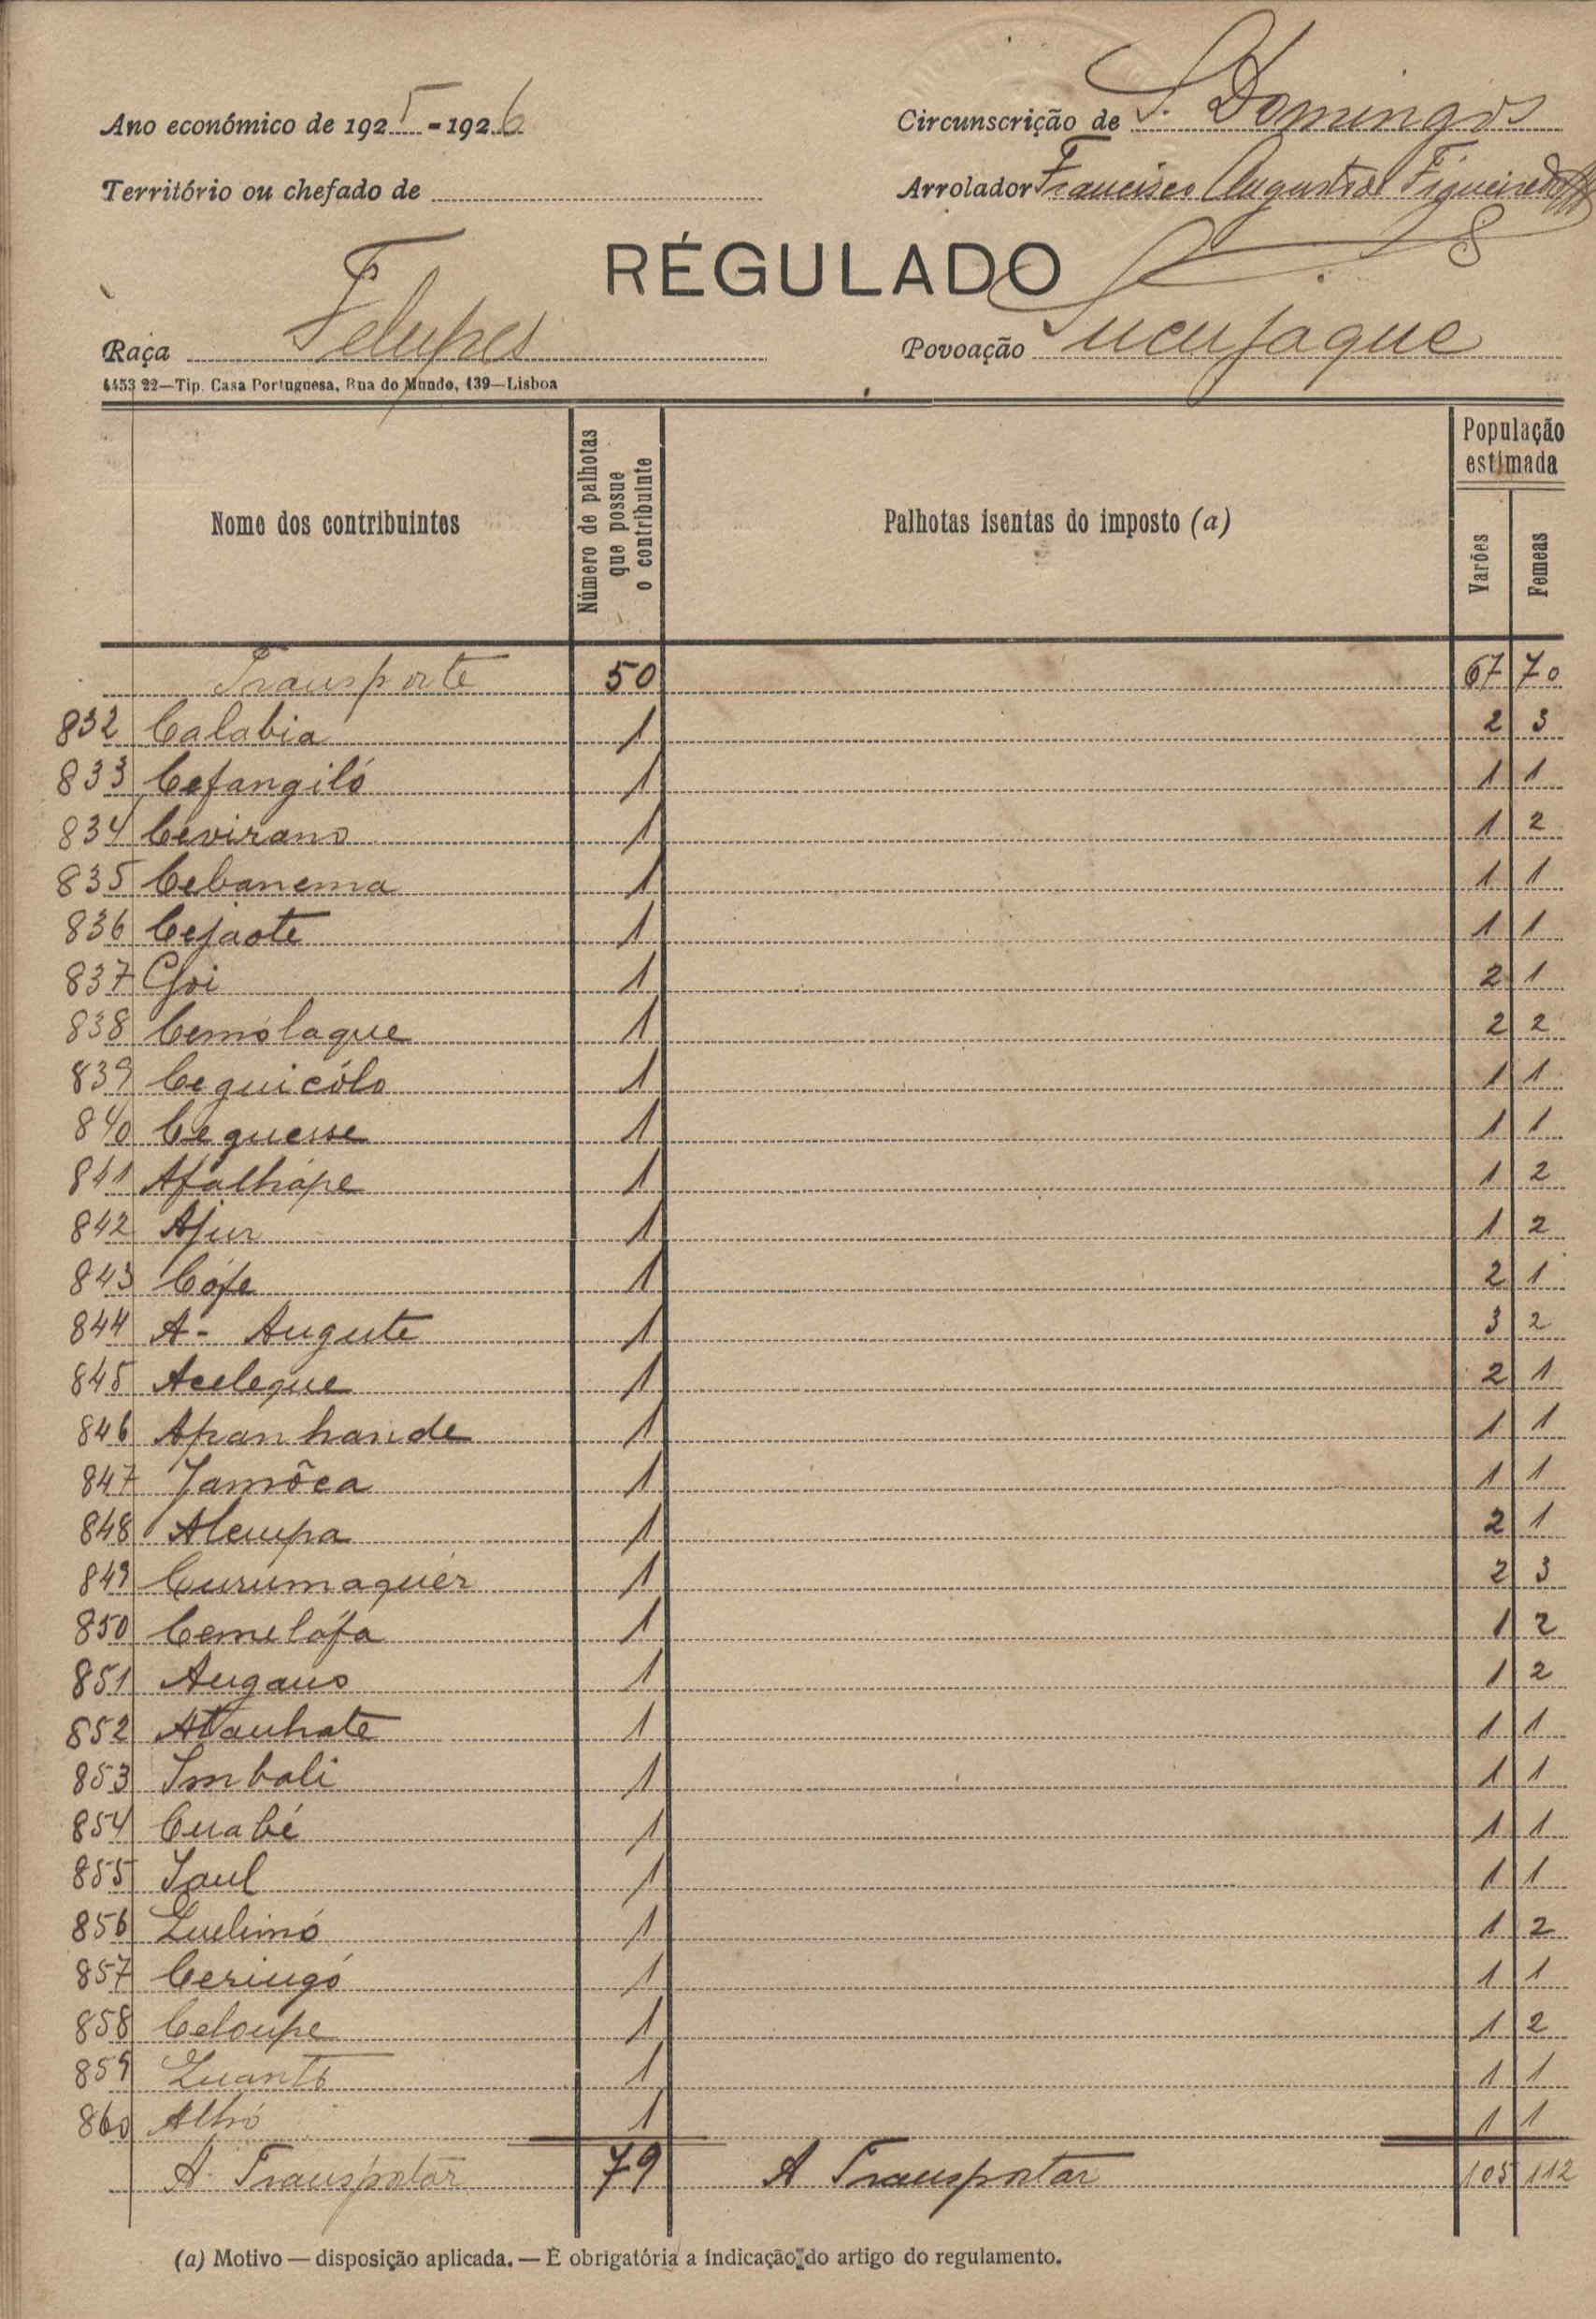 Ano económico de 1925-1926
Circunscrição de S. Domingos
Território ou chefado de
Arrolador Francisco Augusto Figueiredo
RÉGULADO
Raça Felupes
Povoação Sucujaque
4453 22—Tip. Casa Portuguesa, Rua do Mundo, 139—Lisboa
Nome dos contribuintes
Número de palhotas que possue o contribuinte
Palhotas isentas do imposto (a)
População estimada
Varões
Femeas
Transporte 50 67 70
832 Calabia 1 2 3
833 Cefangiló 1 1 1
834 Cevirano 1 1 2
835 Cebanema 1 1 1
836 Cejaote 1 1 1
837 1 2 1
838 Cemólaque 1 2 2
839 Cequicólo 1 1 1
840 Ceguesse 1 1 1
841 Afálhápe 1 1 2
842 Ajur 1 1 2
843 Cófe 1 2 1
844 A- Augute 1 3 2
845 Aceleque 1 2 1
846 Apanhande 1 1 1
847 Jamôca 1 1 1
848 Alempa 1 2 1
849 Curúmaquér 1 2 3
850 Cemeláfa 1 1 2
851 Augano 1 1 2
852 1 1 1
853 Imbali 1 1 1
854 Cuabé 1 1 1
855 Jaul 1 1 1
856 Luelimó 1 1 2
857 Ceringó 1 1 1
858 Celoupe 1 1 2
859 Luantó 1 1 1
860 Alhó 1 1 1
A Transportar 79 A Transportar 105 112
(a) Motivo — disposição aplicada. — É obrigatória a indicação do artigo do regulamento.